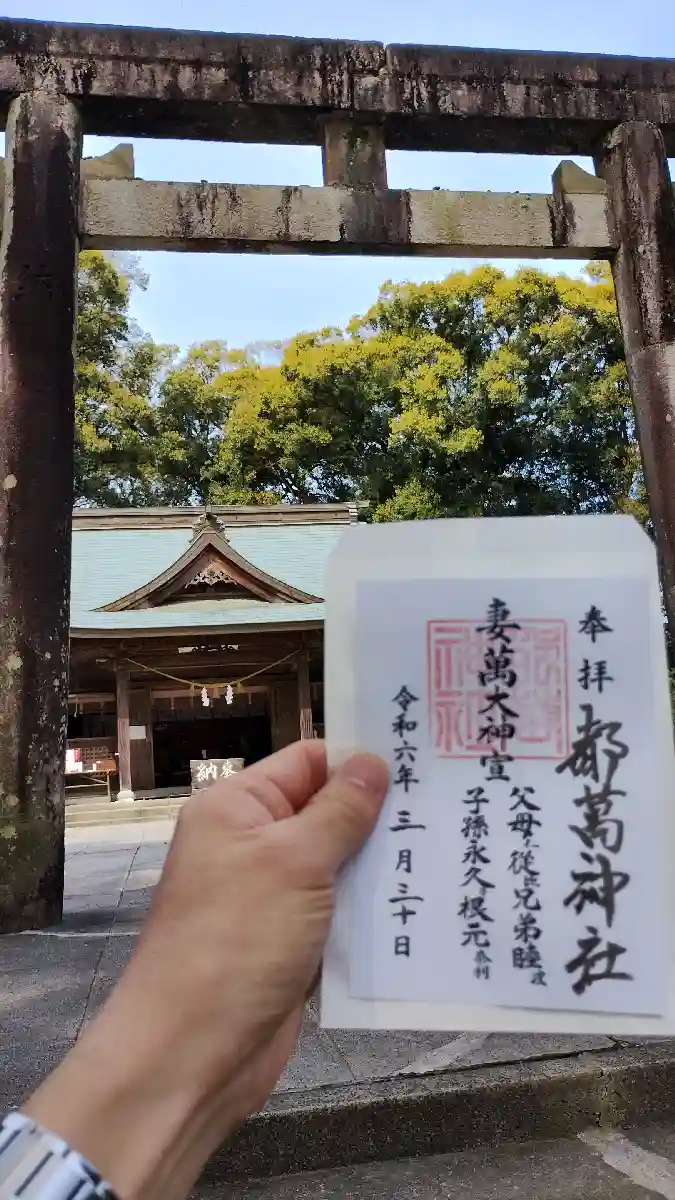 奉拝
都萬神社
妻萬大神宣
父母仁従比兄弟睦女
子孫永久乎根元奈利
令和六年三月三十日
奉納